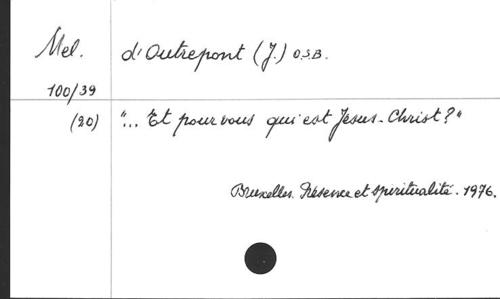 Mel. d'Outrepont (J.) O.S.B.
100/39
(20) "... Et pour vous qui est Jésus-Christ?"
Bruxelles. Présence et spiritualité. 1976.